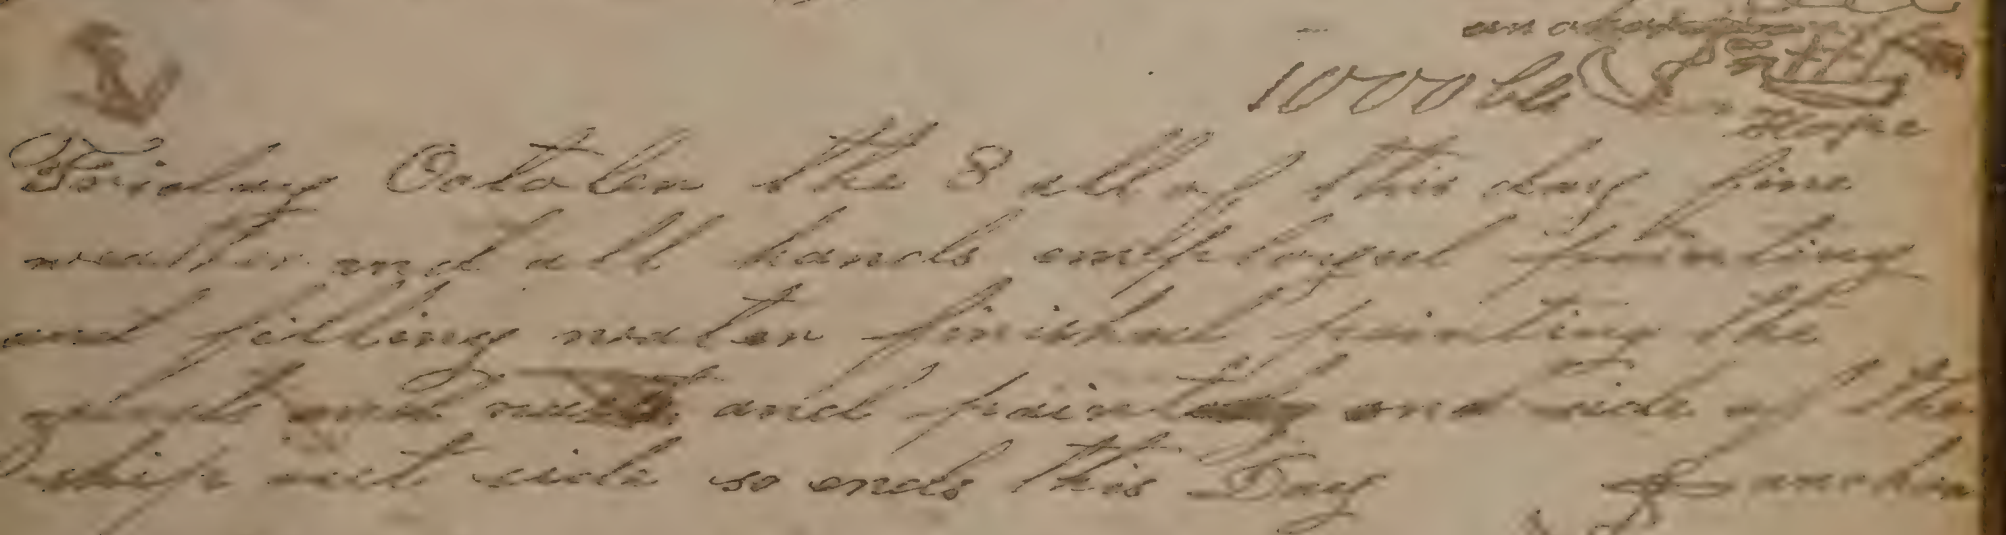 1000 bls
Hope
Friday October the 8 all of this day fine
weather and all hands employed painting
and filling water finished painting the
and and painted one side of the
ship out side so ends this Day